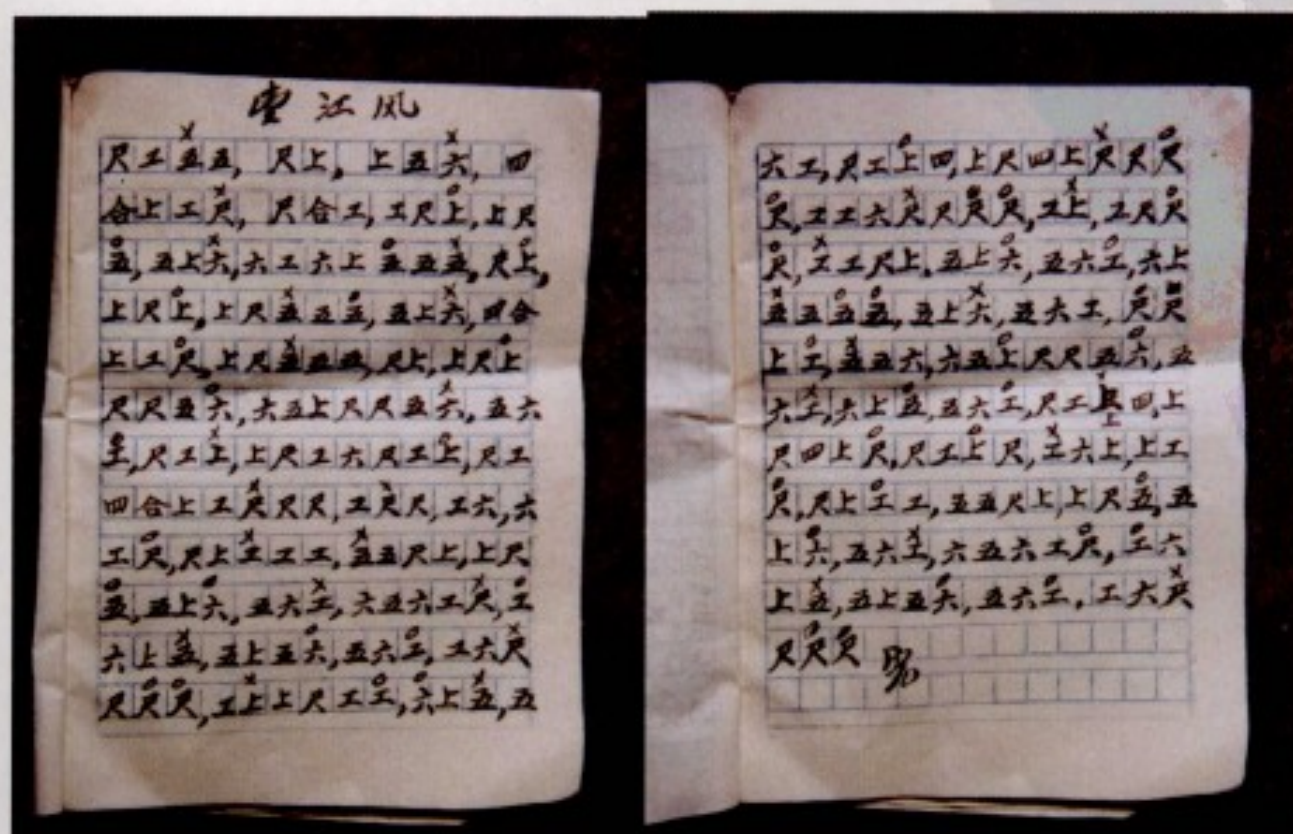 江风
尺工五五, 尺上, 上五六, 四
合上工尺, 尺合工, 工尺上, 上尺
五, 五上六, 六工六上五五五, 尺上,
上尺上, 上尺五五五, 五上六, 四合
上工尺, 上尺五五五, 尺上, 上尺上
尺尺五六, 六五上尺尺五六, 五六
工, 尺工上, 上尺工六尺工上, 尺工
四合上工尺尺尺, 工尺尺, 工六, 六
工尺, 尺上工工工, 五五尺上, 上尺
五, 五上六, 五六工, 六五六工尺, 工
六上五, 五上五六, 五六工, 工六尺
尺尺尺, 工上上尺工工, 六上五, 五
六工, 尺工上四, 上尺四上尺尺尺
尺, 工工六尺尺尺尺, 工上, 工尺尺
尺, 工工尺上, 五上六, 五六工, 六上
五五五五, 五上六, 五六工, 尺尺
上工, 五五六, 六五上尺尺五六, 五
六工, 六上五, 五六工, 尺工上四, 上
尺四上尺, 尺工上尺, 工六上, 上工
尺, 尺上工工, 五五尺上, 上尺五, 五
上六, 五六工, 六五六工尺, 工六
上五, 五上五六, 五六工, 工六尺
尺尺尺